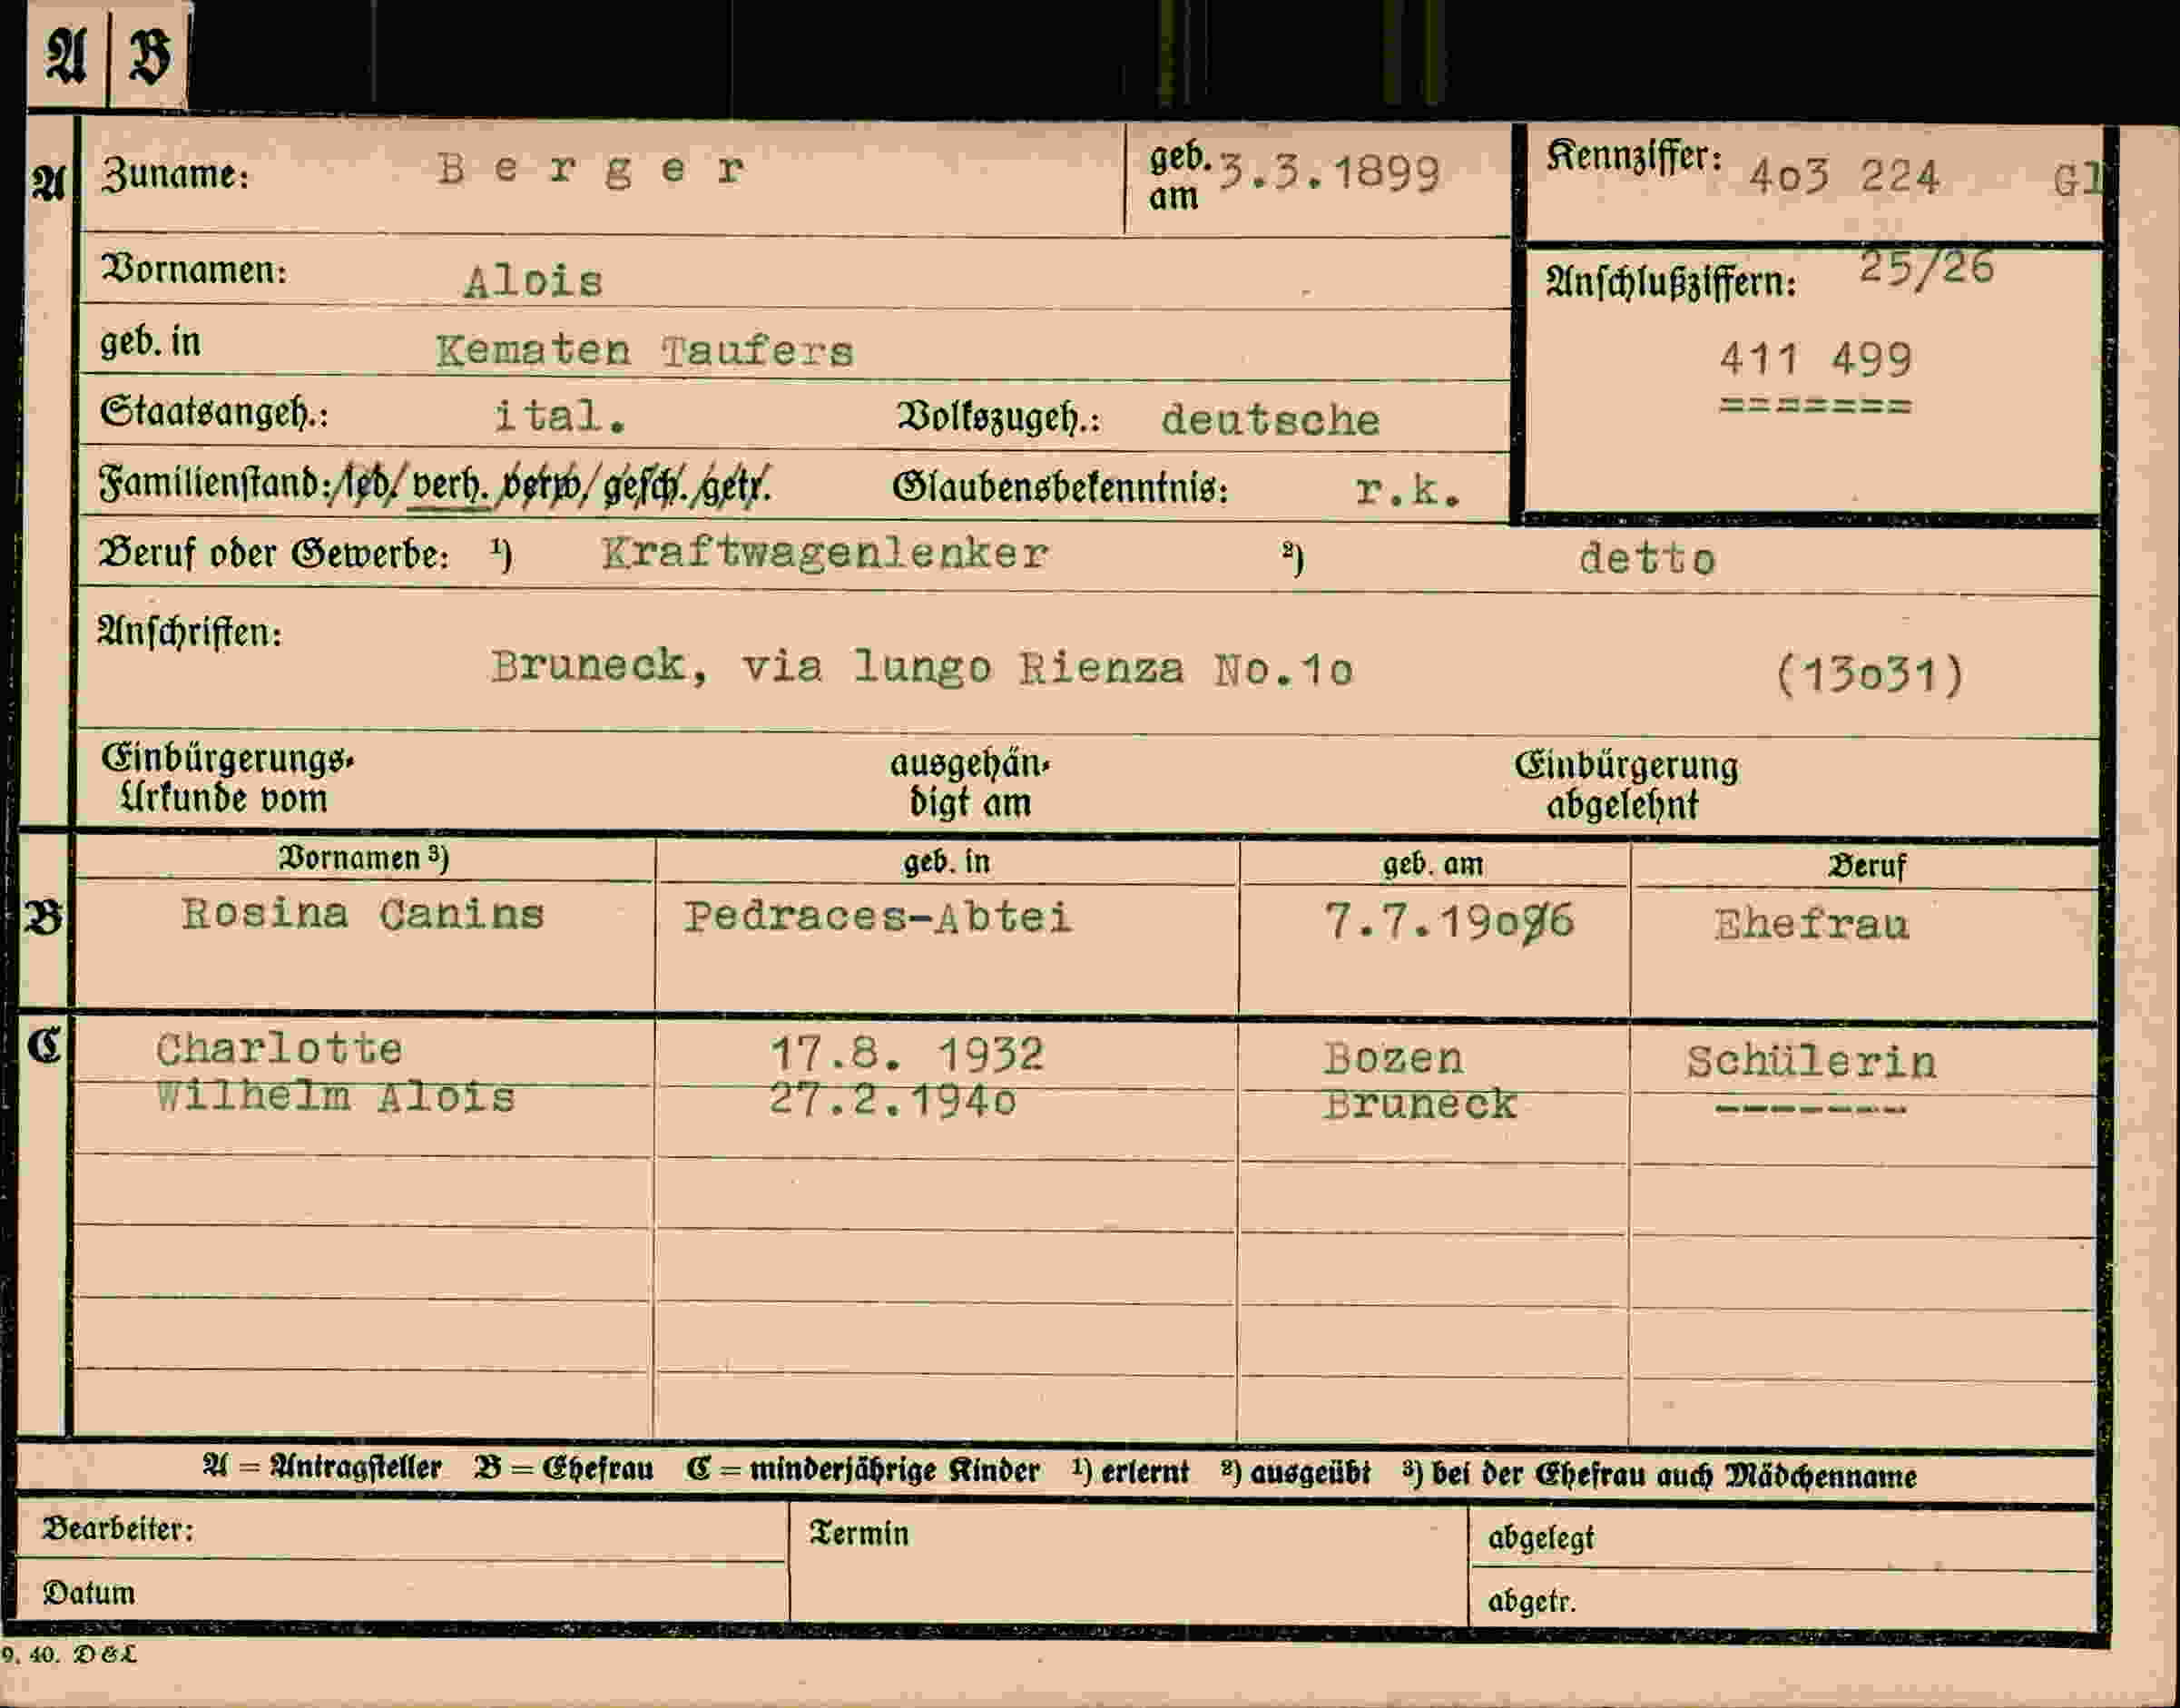 A | B
A Zuname: Berger geb. am 3.3.1899 Kennziffer: 403 224 Gl
Vornamen: Alois Anschlußziffern: 25/26
geb. in Kematen Taufers 411 499
=======
Staatsangeh.: ital. Volkszugeh.: deutsche
Familienstand: led/ verh. verw/ gesch./getr. Glaubensbekenntnis: r.k.
Beruf oder Gewerbe: ¹) Kraftwagenlenker ²) detto
Anschriften: Bruneck, via lungo Rienza No.10 (13031)
Einbürgerungs- ausgehän- Einbürgerung
Urkunde vom digt am abgelehnt
Vornamen ³) geb. in geb. am Beruf
B Rosina Canins Pedraces-Abtei 7.7.1906 Ehefrau
C Charlotte 17.8. 1932 Bozen Schülerin
Wilhelm Alois 27.2.1940 Bruneck -------
A = Antragsteller B = Ehefrau C = minderjährige Kinder ¹) erlernt ²) ausgeübt ³) bei der Ehefrau auch Mädchenname
Bearbeiter: Termin abgelegt
Datum abgetr.
9. 40. D&L